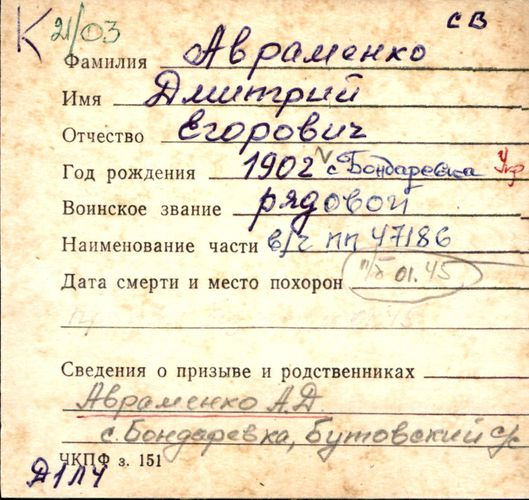 К 21/03 СВ
Фамилия Авраменко
Имя Дмитрий
Отчество Егорович
Год рождения 1902 с. Бондаревка Укр
Воинское звание рядовой
Наименование части в/ч пп 47186
Дата смерти и место похорон п/х 01.45
Сведения о призыве и родственниках
Авраменко А.Д
с. Бондаревка, Бутовский с/с
ЧКПФ з. 151
Д1ЛЧ